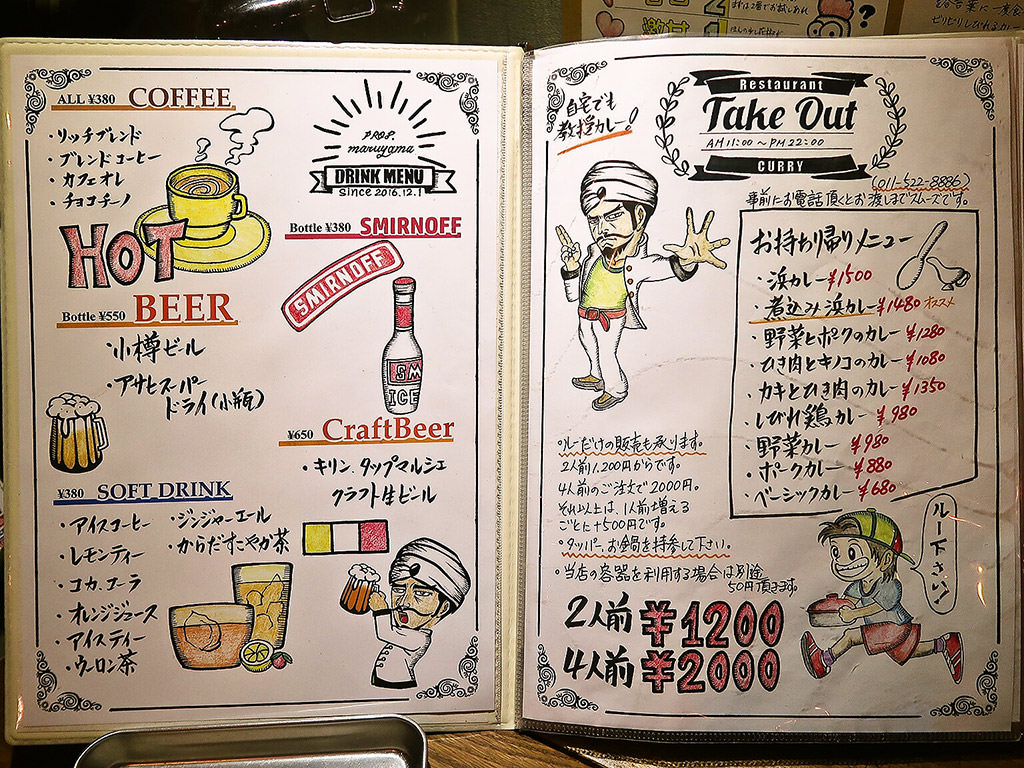 ALL ¥380 COFFEE
・リッチブレンド
・ブレンドコーヒー
・カフェオレ
・チョコチーノ
HOT
PROF.
maruyama
DRINK MENU
since 2016.12.1
Bottle ¥380 SMIRNOFF
SMIRNOFF
SM
ICE
Bottle ¥550 BEER
・小樽ビール
・アサヒスーパー
ドライ(小瓶)
¥650 CraftBeer
・キリン.タップマルシェ
クラフト生ビール
¥380 SOFT DRINK
・アイスコーヒー
・レモンティー
・コカ.コーラ
・オレンジジュース
・アイスティー
・ウーロン茶
・ジンジャーエール
・からだすこやか茶
自宅でも
教授カレー!
Restaurant
Take Out
AM 11:00 〜 PM 22:00
CURRY
(011-522-8886)
事前にお電話頂くとお渡しまでスムーズです。
お持ち帰りメニュー
・浜カレー ¥1500
・煮込み浜カレー ¥1480 オススメ
・野菜とポークのカレー ¥1280
・ひき肉とキノコのカレー ¥1080
・カキとひき肉のカレー ¥1350
・しびれ鶏カレー ¥980
・野菜カレー ¥980
・ポークカレー ¥880
・ベーシックカレー ¥680
。ルーだけの販売も承ります。
2人前1.200円からです。
4人前のご注文で2000円。
それ以上は、1人前増える
ごとに+500円です。
。タッパー、お鍋を持参して下さい。
。当店の容器を利用する場合は別途
50円頂きます。
2人前 ¥1200
4人前 ¥2000
ルー下さい!